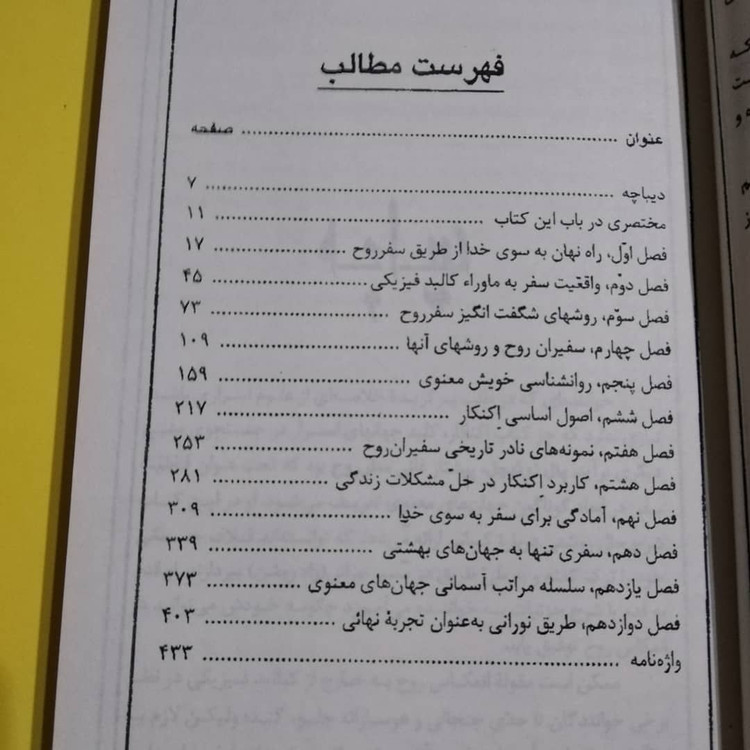 فهرست مطالب
عنوان ........ صفحه
دیباچه ........ ۷
مختصری در باب این کتاب ........ ۱۱
فصل اوّل، راه نهان به سوی خدا از طریق سفرروح ........ ۱۷
فصل دوّم، واقعّیت سفر به ماوراء کالبد فیزیکی ........ ۴۵
فصل سوّم، روشهای شگفت انگیز سفرروح ........ ۷۳
فصل چهارم، سفیران روح و روشهای آنها ........ ۱۰۹
فصل پنجم، روانشناسی خویش معنوی ........ ۱۵۹
فصل ششم، اصول اساسی اِکنکار ........ ۲۱۷
فصل هفتم، نمونه‌های نادر تاریخی سفیران‌روح ........ ۲۵۳
فصل هشتم، کاربرد اِکنکار در حلّ مشکلات زندگی ........ ۲۸۱
فصل نهم، آمادگی برای سفر به سوی خدا ........ ۳۰۹
فصل دهم، سفری تنها به جهان‌های بهشتی ........ ۳۳۹
فصل یازدهم، سلسله مراتب آسمانی جهان‌های معنوی ........ ۳۷۳
فصل دوازدهم، طریق نورانی به‌عنوان تجربهٔ نهائی ........ ۴۰۳
واژه‌نامه ........ ۴۳۳